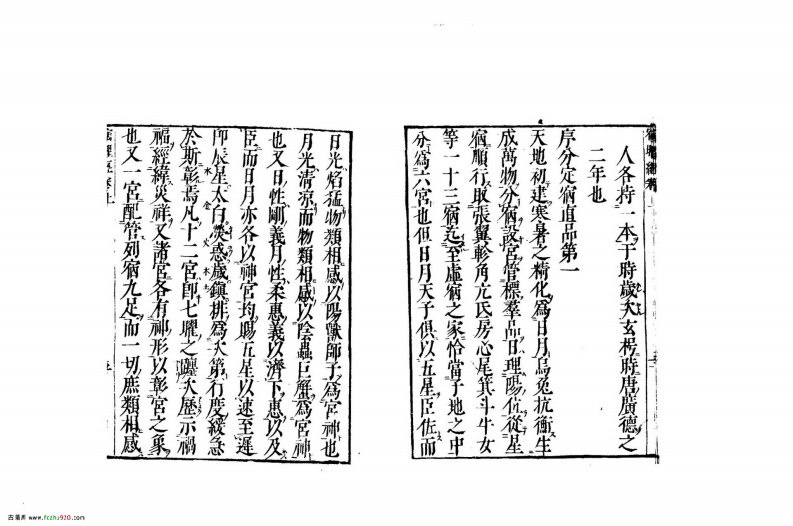 人各持一本于時歲次玄枵時唐廣德之
二年也
序分定宿直品第一
天地初建寒暑之精化爲日月烏兔抗衡生
成萬物分宿設宮管標羣品日理陽位從星
宿順行取張翼軫角亢氐房心尾箕斗牛女
等一十三宿迄至虛宿之家恰當子地之中
分爲六宮也但日月天子俱以五星臣佐而
日光焰猛物類相感以陽獸師子爲宮神也
月光清涼而物類相感以陰蟲巨蟹爲宮神
也又日性剛義月性柔惠義以濟下惠以及
臣而日月亦各以神宮均賜五星以速至遲
卽辰星太白熒惑歲鎮排爲次第行度緩急
水金火木土
於斯彰焉凡十二宮卽七曜之躔次歷示禍
福經緯災祥又諸宮各有神形以彰宮之象
也又一宮配管列宿九足而一切庶類相感
古籍库 www.fczhu920.com